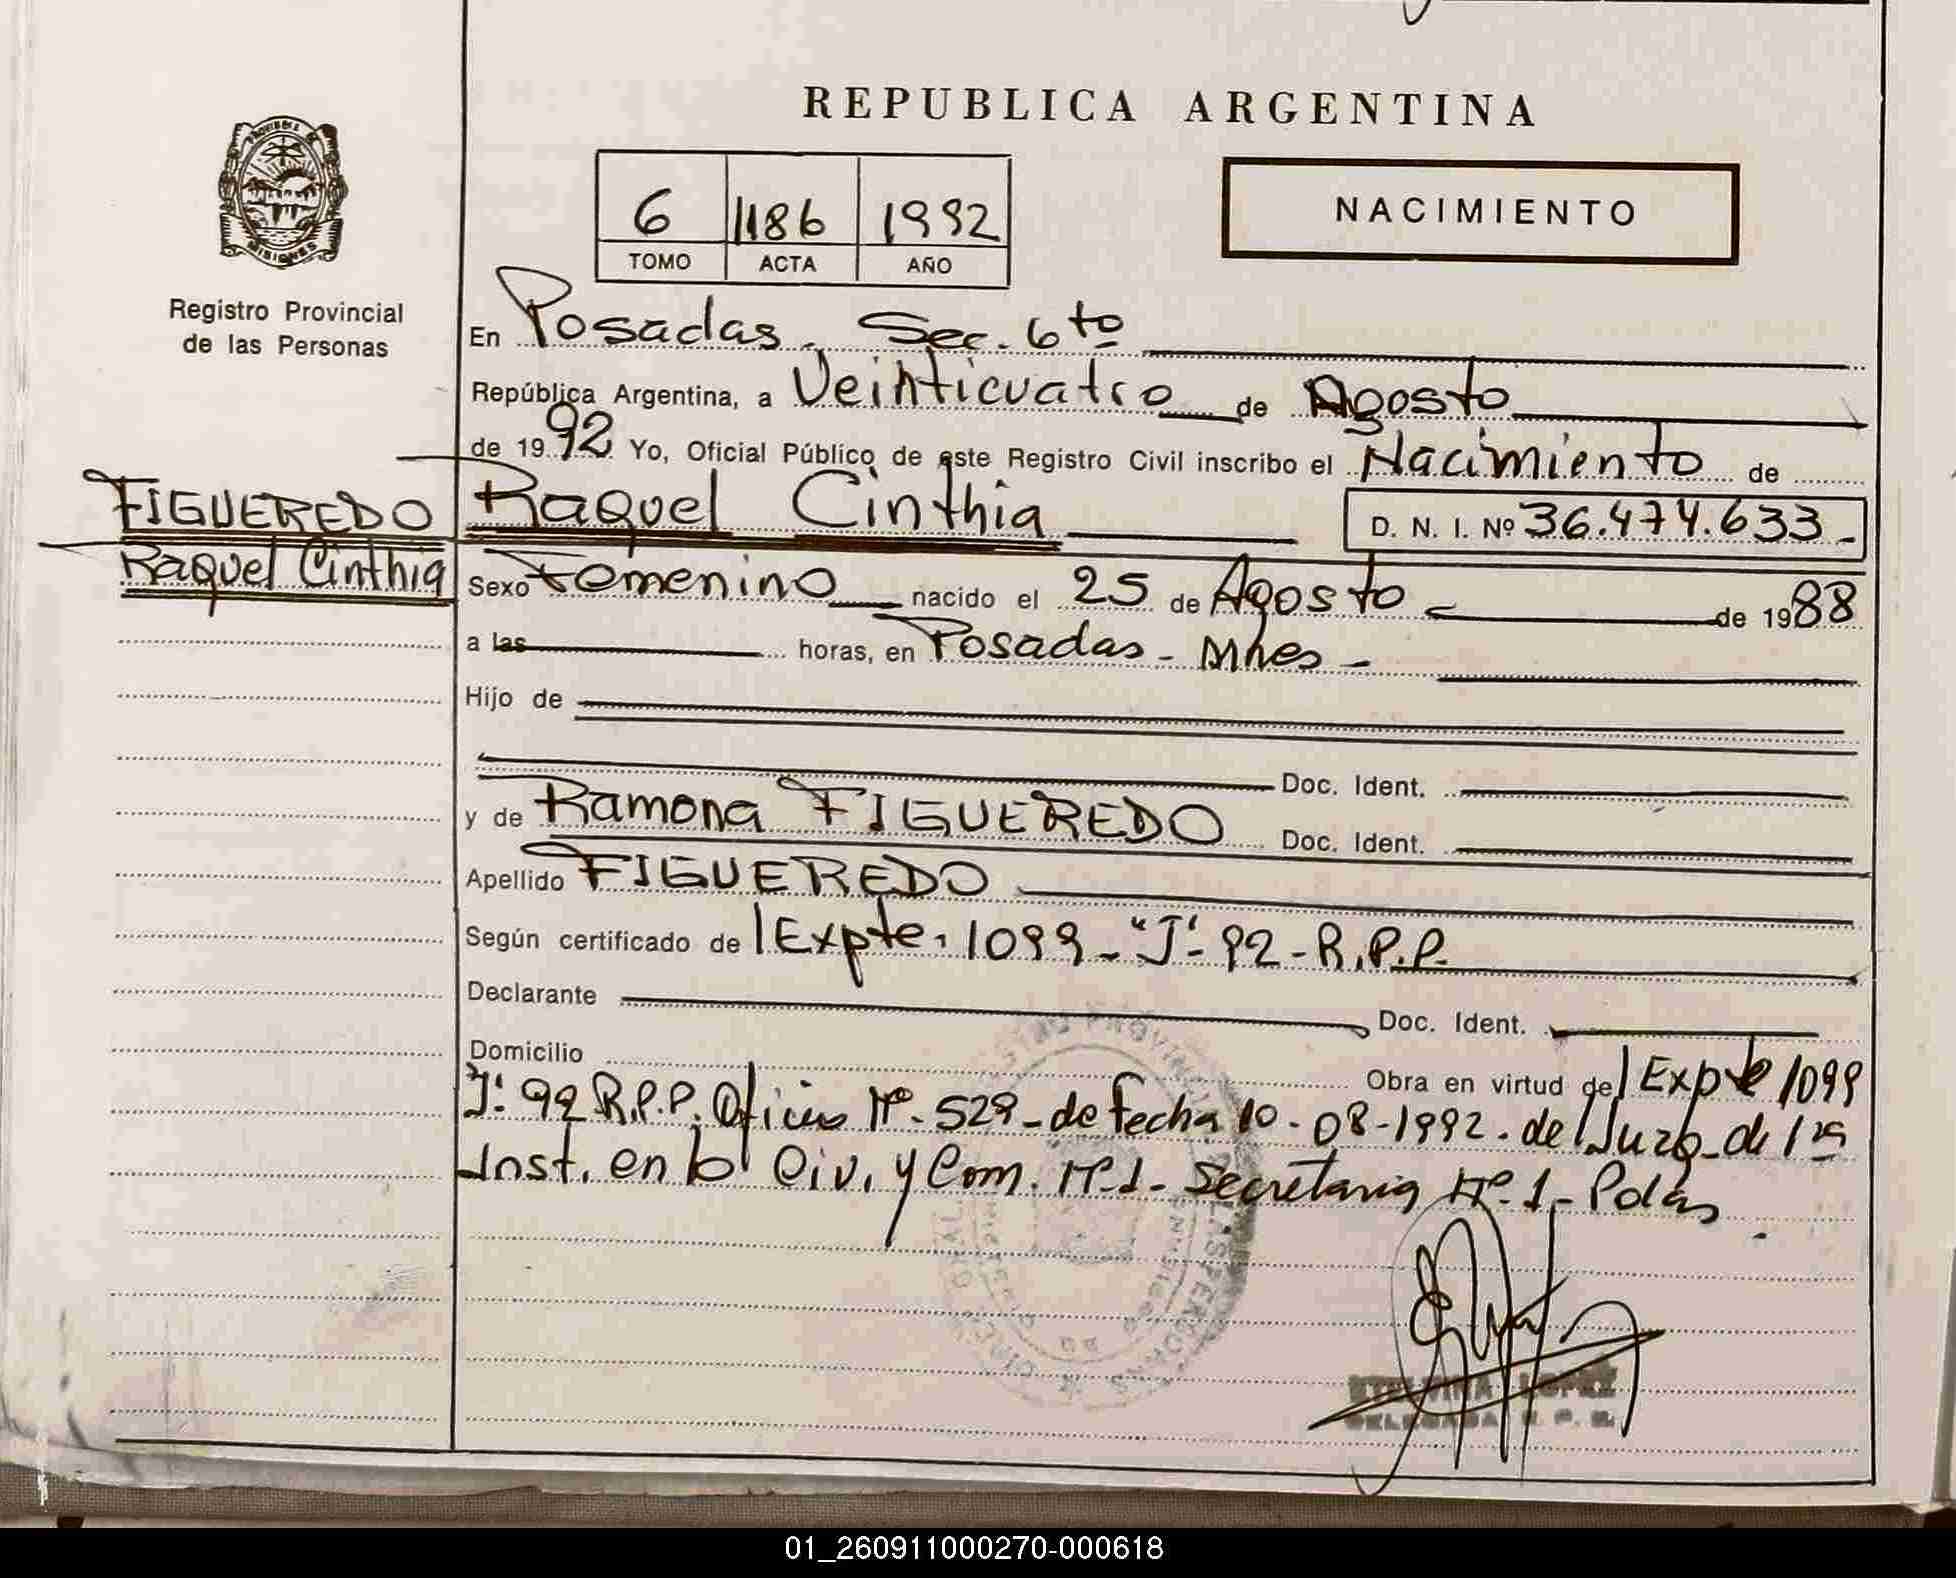 REPUBLICA ARGENTINA
PROVINCIA
MISIONES
Registro Provincial
de las Personas
6 1186 1992
TOMO ACTA AÑO
NACIMIENTO
En Posadas. Sec. 6to
República Argentina, a Veinticuatro de Agosto
de 1992 Yo, Oficial Público de este Registro Civil inscribo el Nacimiento de
FIGUEREDO
Raquel Cinthia
Raquel Cinthia
D. N. I. Nº 36.474.633-
Sexo Femenino nacido el 25 de Agosto de 1988
a las horas, en Posadas - Mnes -
Hijo de
Doc. Ident.
y de Ramona FIGUEREDO Doc. Ident.
Apellido FIGUEREDO
Según certificado de Expte. 1099-"J"-92-R.P.P.
Declarante Doc. Ident.
Domicilio
Obra en virtud de Expte 1099
"J" 92 R.P.P. Oficio Nº. 529-de fecha 10-08-1992. del Juzg. de 1ra
Inst. en lo Civ. y Com. Nº.1- Secretaria Nº.1- Pdas
LOPEZ
DELEGADA R. P. P.
01_260911000270-000618